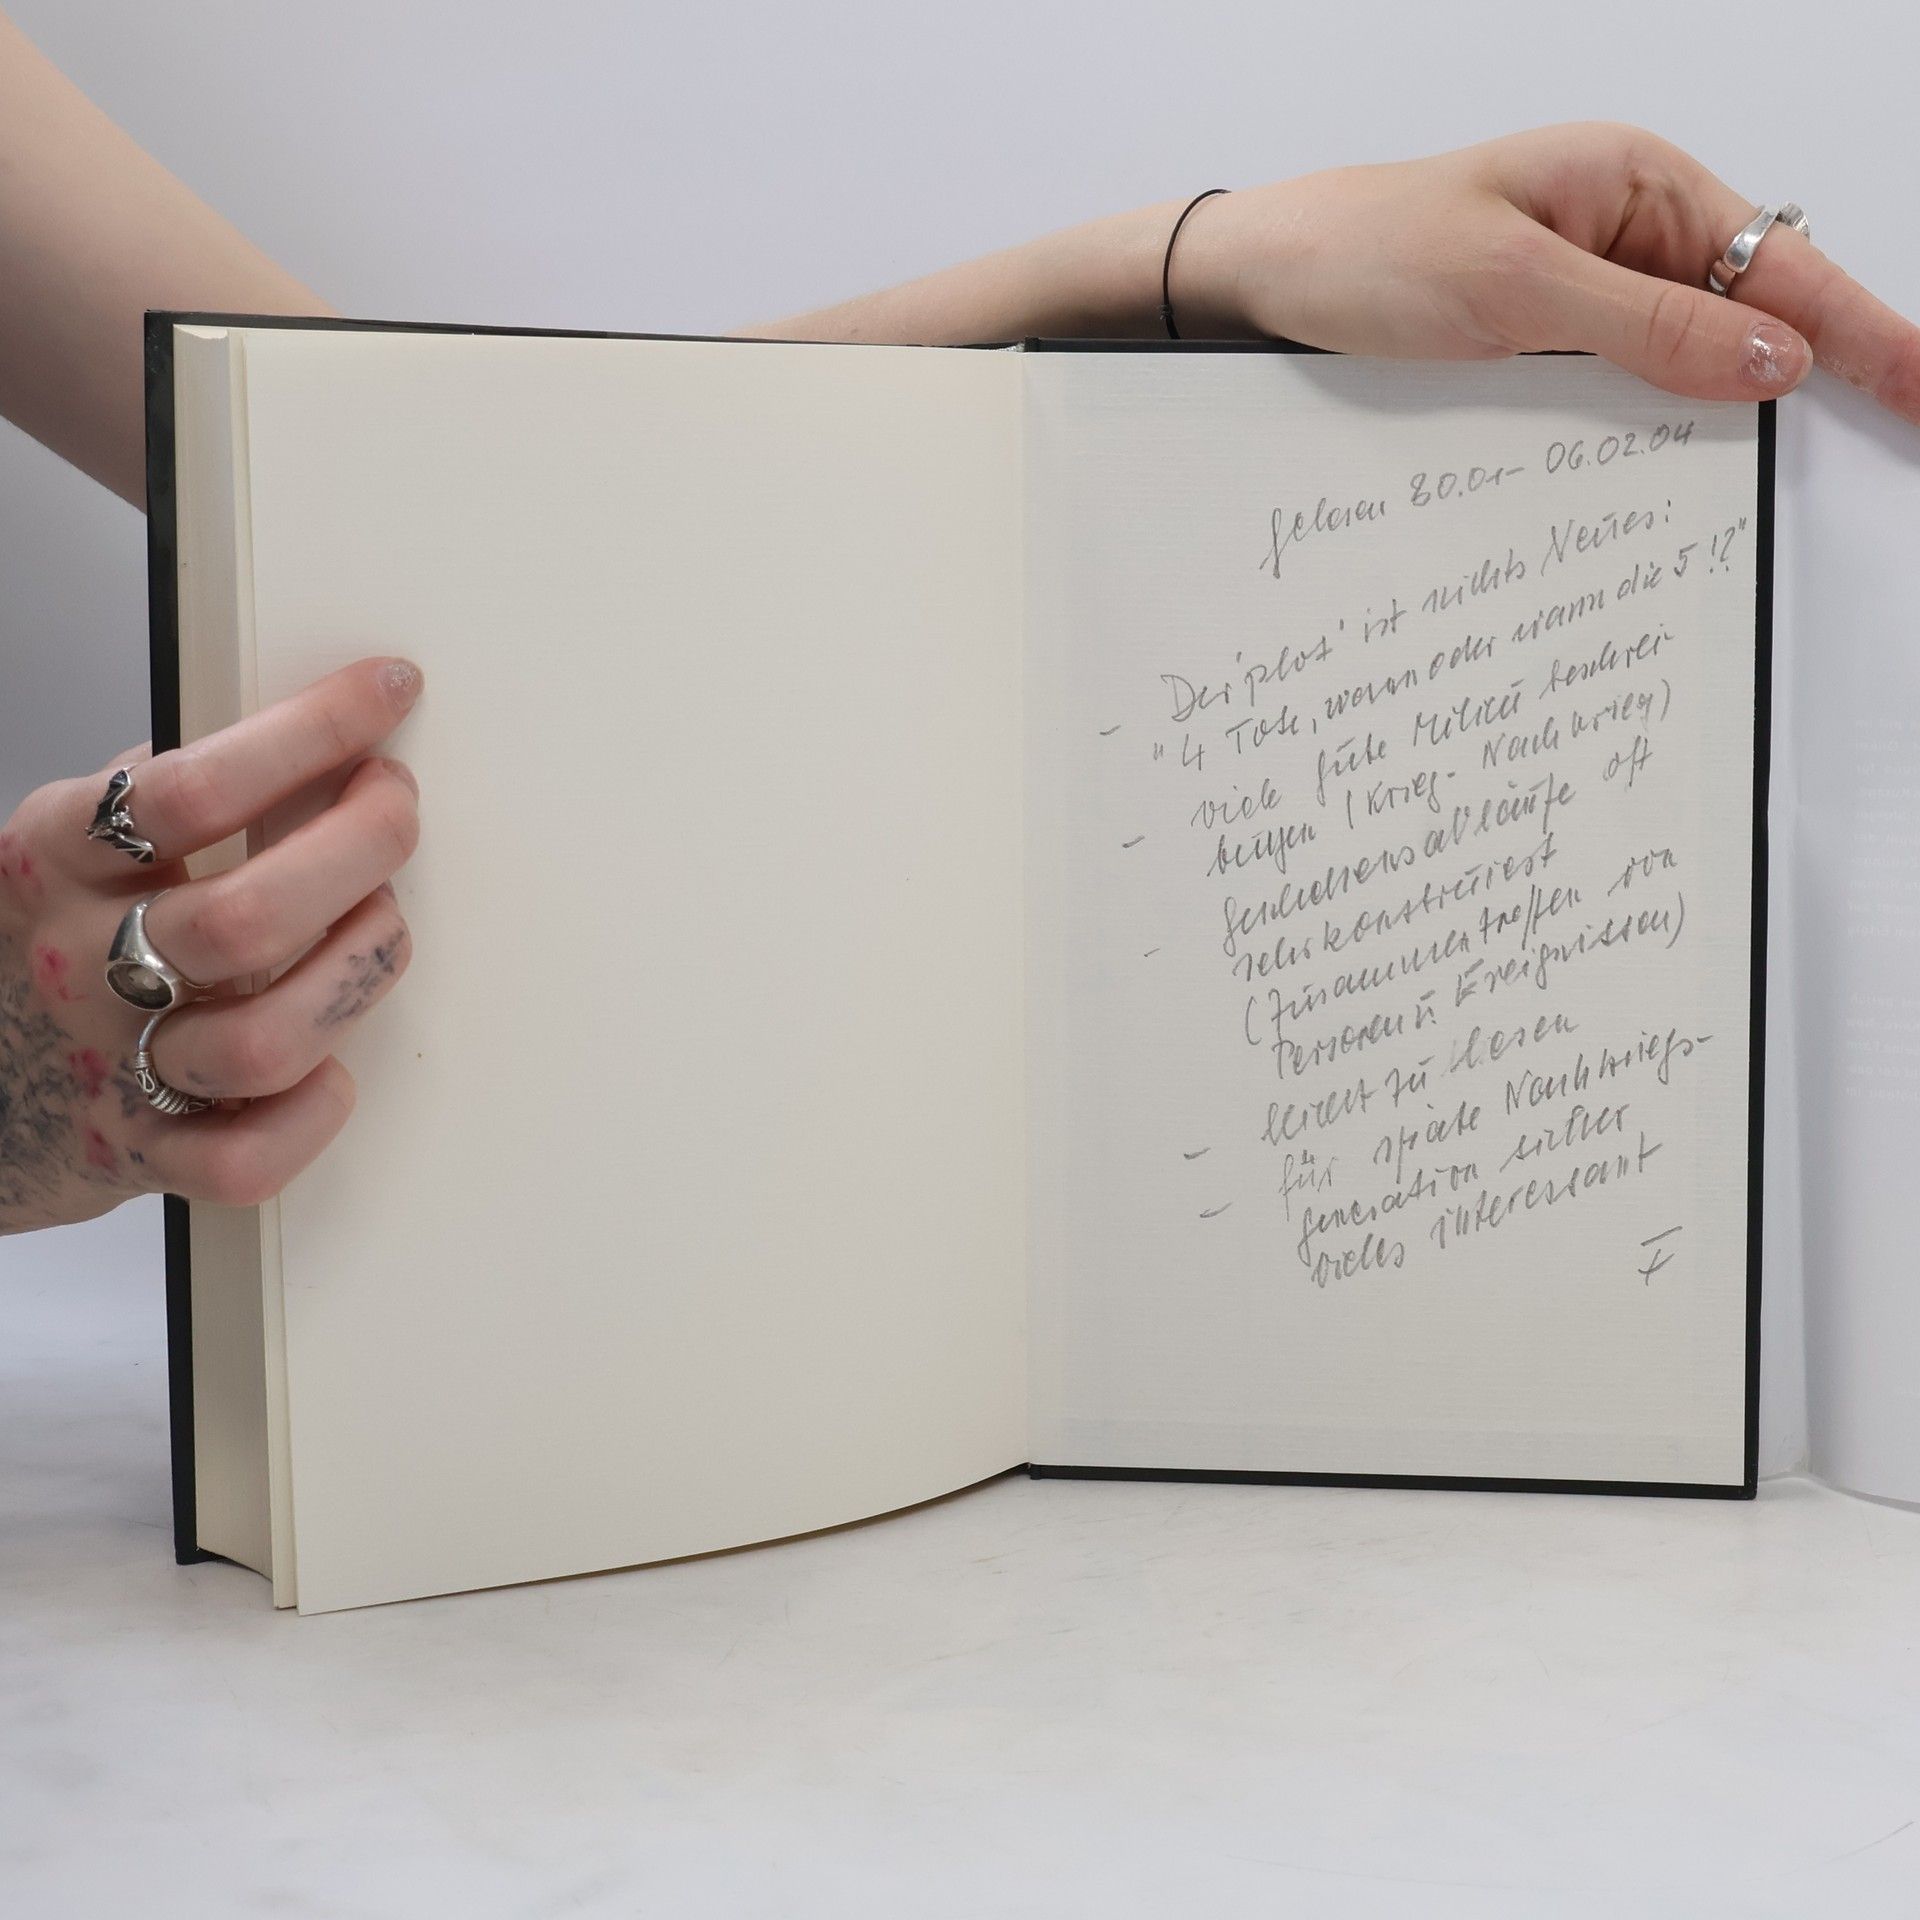 gelesen 30.01- 06.02.04
- Der 'plot' ist nichts Neues:
"4 Tote, wann oder wann die 5!?"
- viele gute Milieu beschrei-
bungen (Krieg- Nachkrieg)
- Geschehensabläufe oft
sehr konstruiert
(Zusammentreffen von
Personen u. Ereignissen)
- leicht zu lesen
- für späte Nachkriegs-
generation sicher
vieles interessant